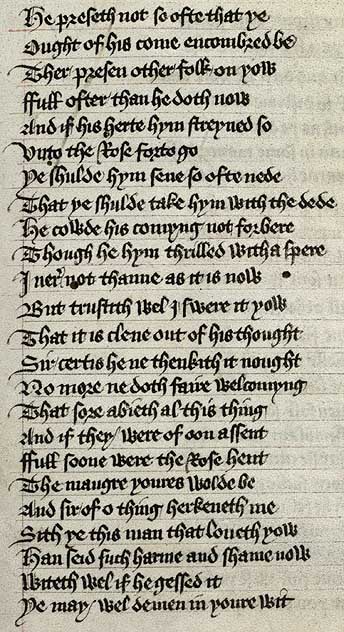 He preseth not so ofte that ye
Ought of his come encombred be
Ther presen other folk on yow
ffull ofter than he doth now
And if his herte hym streyned so
Vnto the Rose forto go
Ye shulde hym sene so ofte nede
That ye shulde take hym with the dede
He cowde his comyng not forbere
Though he hym thrilled with a spere
I ner' not thanne as it is now
But trustith wel I swere it yow
That it is clene out of his thought
Sir certis he ne thenkith it nought
No more ne doth faire welcomyng
That sore abieth al this thing
And if they were of oon assent
ffull soone were the Rose hent
The maugre youres wolde be
And sir of o thing herkeneth me
Sith ye this man that loueth yow
Han seid such harme and shame now
Witeth wel if he gessed it
Ye may wel demen in youre wit